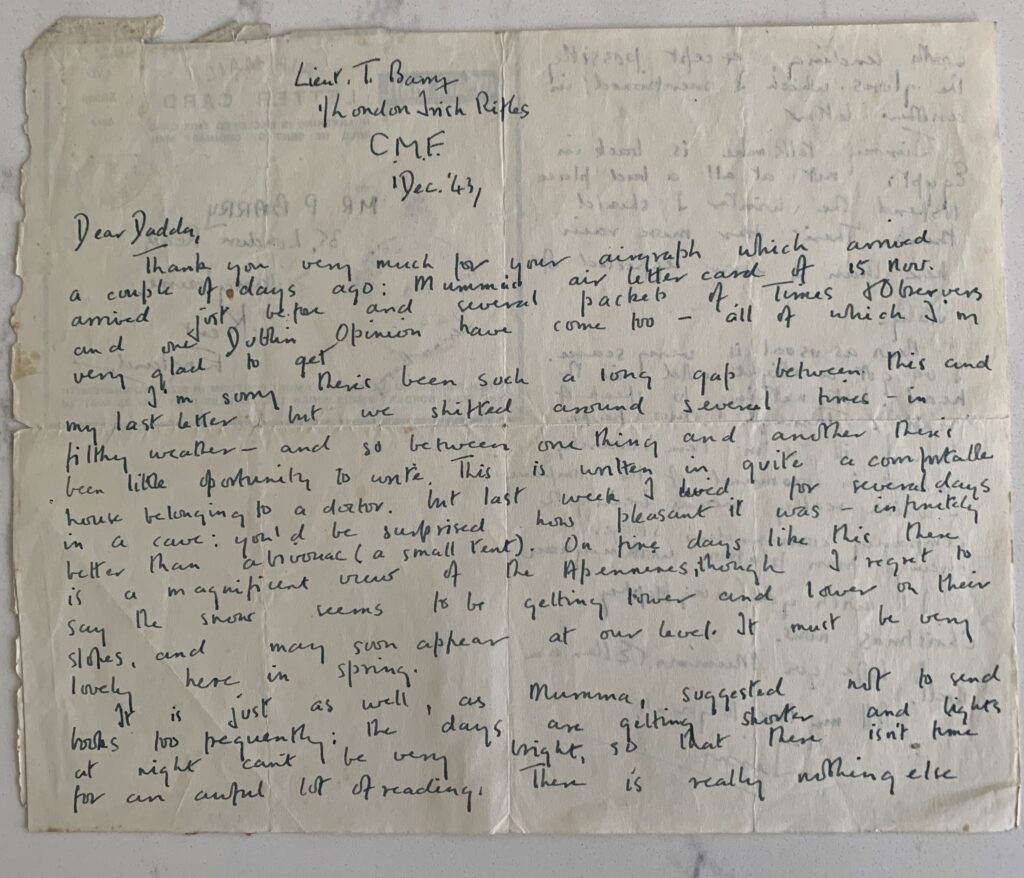 Lieut. T. Barry
1/London Irish Rifles
C.M.F.
1 Dec. '43,
Dear Dadda,
Thank you very much for your airgraph which arrived
a couple of days ago: Mumma's air letter card of 15 Nov.
arrived just before and several packets of Times & Observers
and one Dublin Opinion have come too – all of which I'm
very glad to get
I'm sorry there's been such a long gap between this and
my last letter but we shifted around several times – in
filthy weather – and so between one thing and another there's
been little oportunity to write. This is written in quite a comfortable
house belonging to a doctor. but last week I lived for several days
in a cave: you'd be surprised how pleasant it was – infinitely
better than a bivouac (a small tent). On fine days like this there
is a magnificent view of the Apennines, though I regret to
say the snow seems to be getting lower and lower on their
slopes, and may soon appear at our level. It must be very
lovely here in spring.
It is just as well, as Mumma, suggested not to send
books too frequently: the days are getting shorter and lights
at night can't be very bright, so that there isn't time
for an awful lot of reading. There is really nothing else
MR P BARRY